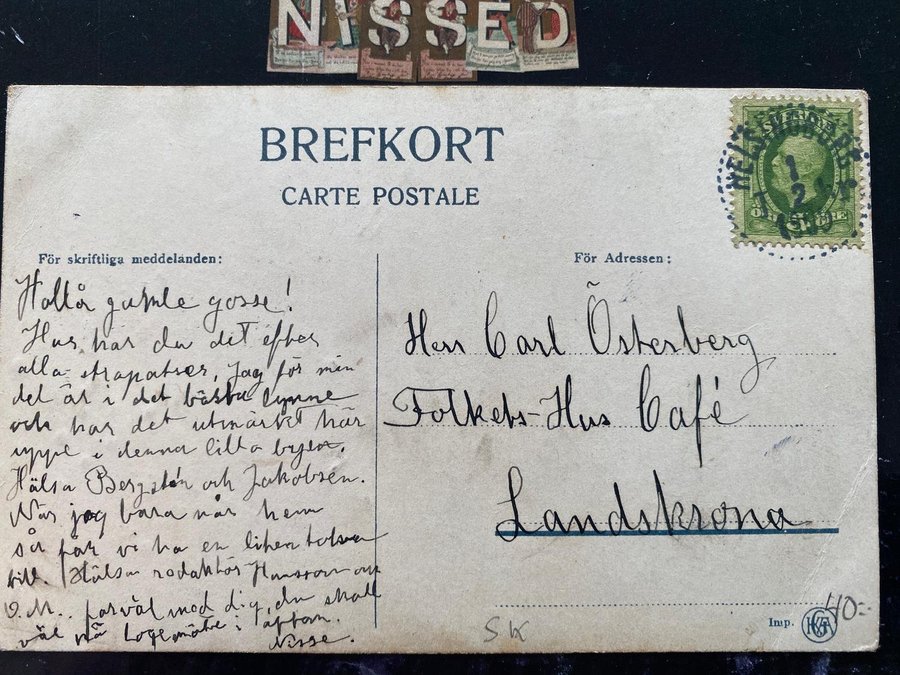 NISSED
BREFKORT
CARTE POSTALE
För skriftliga meddelanden:
Hallå gamle gosse!
Hur har du det efter
alla strapatser, Jag för min
del är i det bästa lynne
och har det utmärkt här
uppe i denna lilla
Hälsa Bergstén och Jakobsen.
När jag bara når hem
så får vi ha en liten
till. Hälsa redaktör Hansson
farväl med dig, du skall
väl på logemöte i afton.
Nisse.
För Adressen:
Herr Carl Österberg
Folkets-Hus Café
Landskrona
1
2
SK
Imp.
40:-